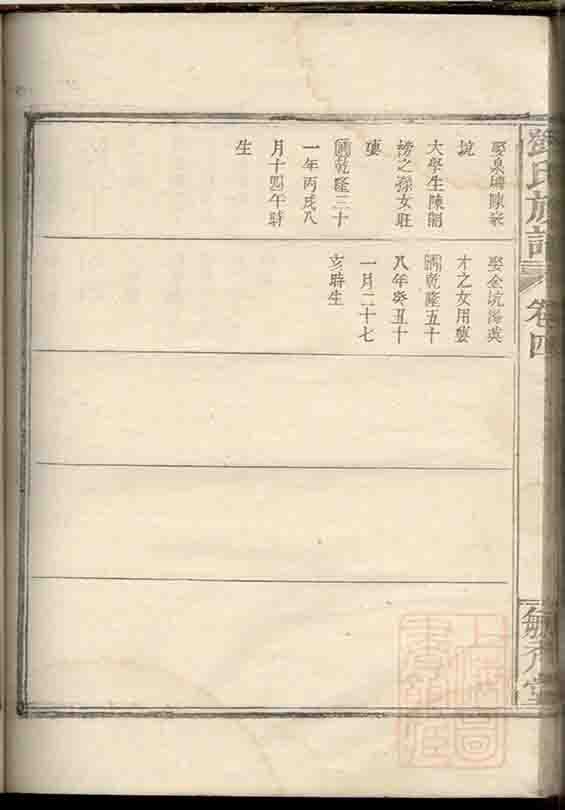 娶泉塘陳家
坑
大學生陳開
榜之孫女旺
婁
國乾隆三十
一年丙戌八
月十四午時
生
娶金坑湯英
才之女用婁
國乾隆五十
八年癸丑十
一月二十七
亥時生
鄧氏族譜
卷四
毓秀堂
上海圖
書館藏